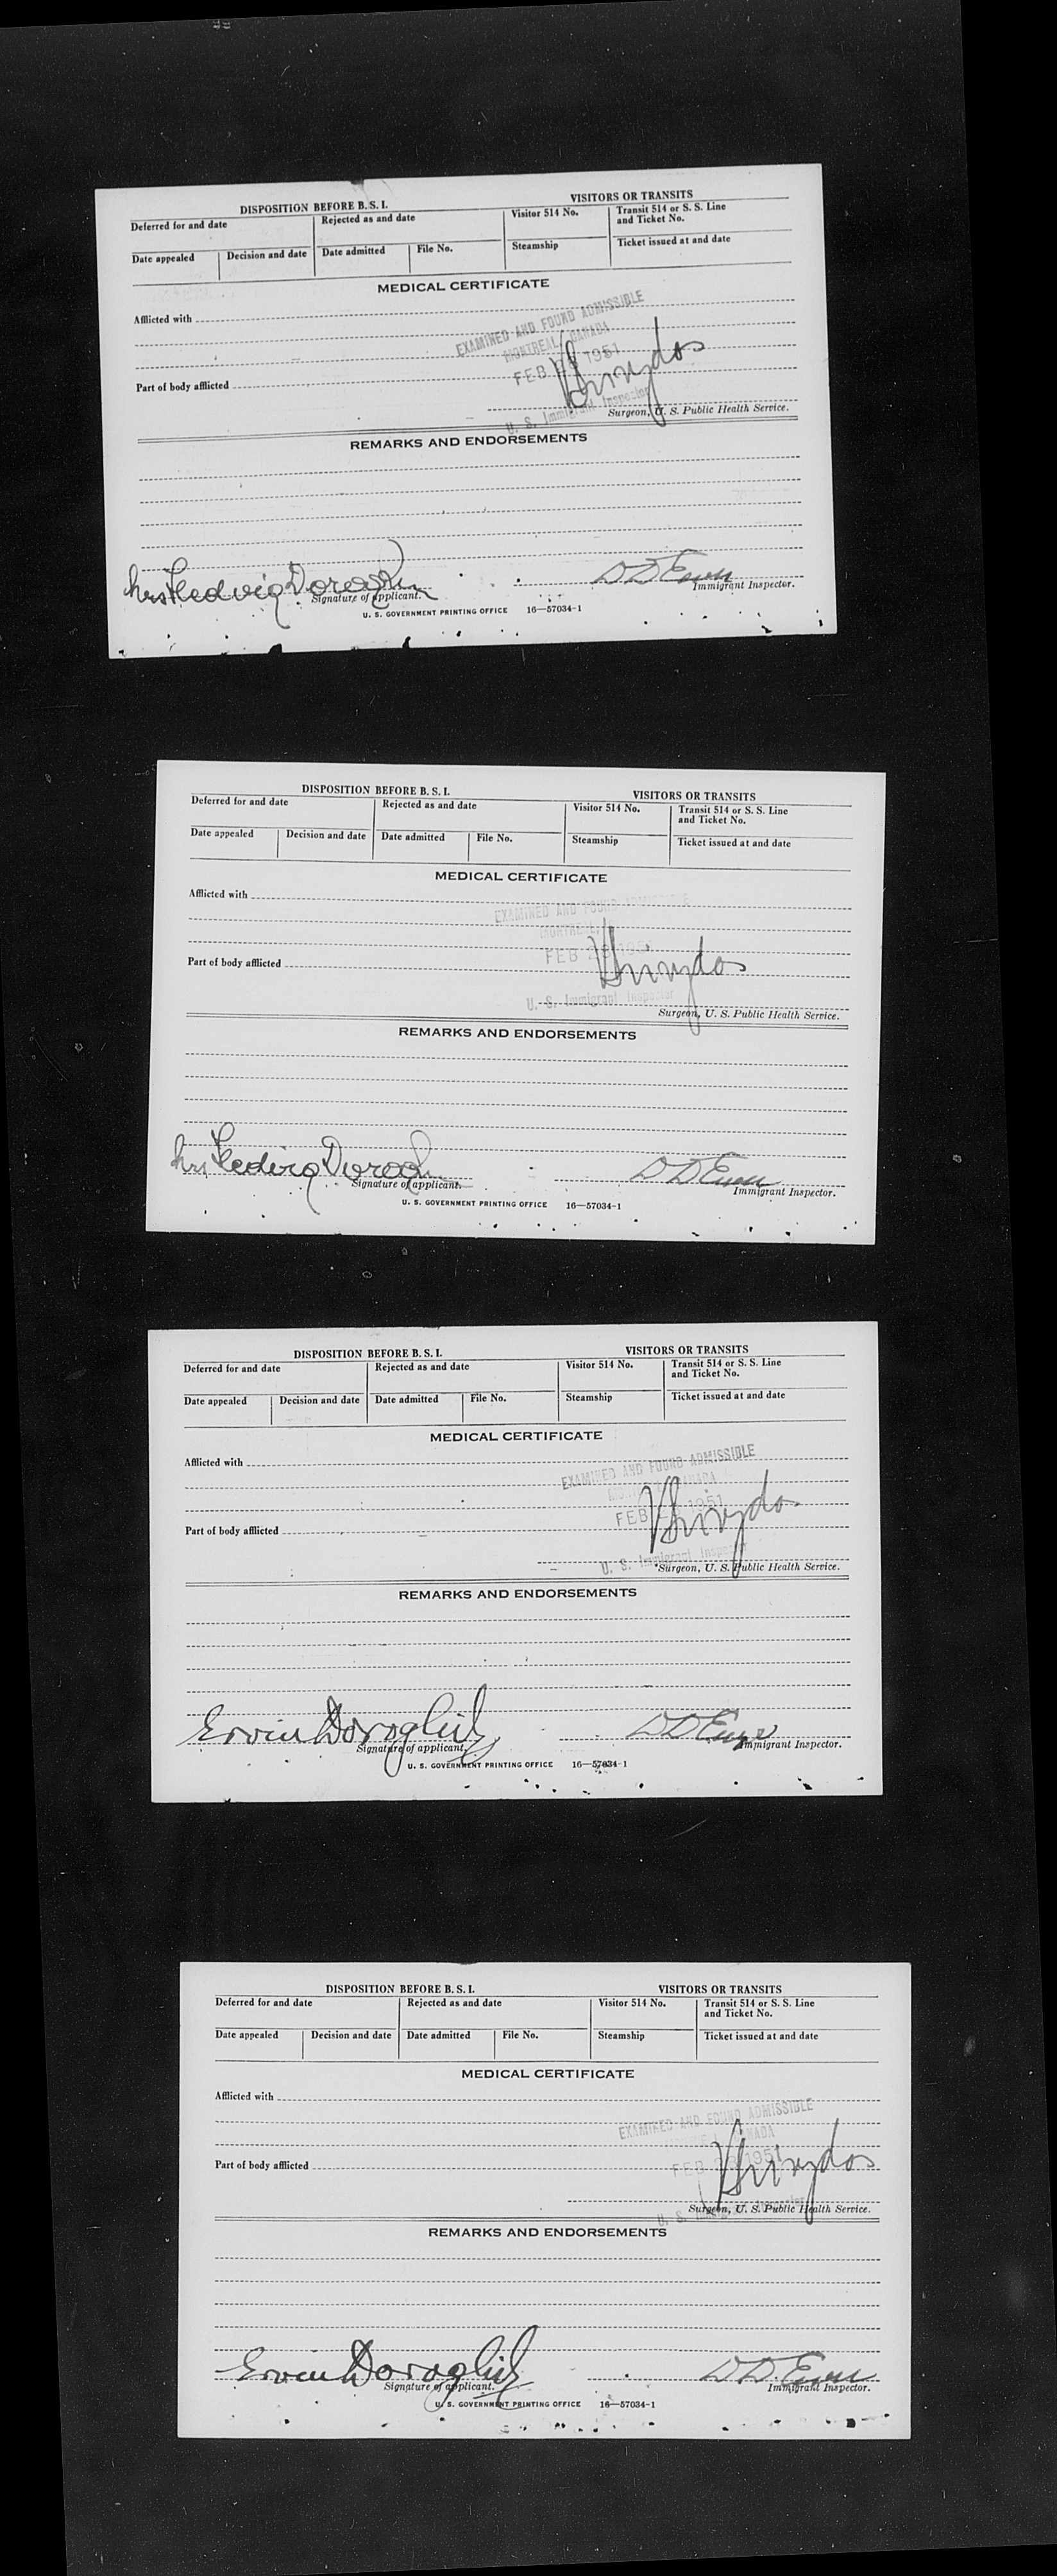 DISPOSITION BEFORE B. S. I.
VISITORS OR TRANSITS
Deferred for and date
Rejected as and date
Visitor 514 No.
Transit 514 or S. S. Line
and Ticket No.
Date appealed
Decision and date
Date admitted
File No.
Steamship
Ticket issued at and date
MEDICAL CERTIFICATE
Afflicted with
EXAMINED AND FOUND ADMISSIBLE
MONTREAL, CANADA
FEB 1951
Part of body afflicted
U. S. Immigrant Inspector
Surgeon, U. S. Public Health Service.
REMARKS AND ENDORSEMENTS
Mrs Hedwig
Signature of applicant.
Immigrant Inspector.
U. S. GOVERNMENT PRINTING OFFICE 16—57034-1
DISPOSITION BEFORE B. S. I.
VISITORS OR TRANSITS
Deferred for and date
Rejected as and date
Visitor 514 No.
Transit 514 or S. S. Line
and Ticket No.
Date appealed
Decision and date
Date admitted
File No.
Steamship
Ticket issued at and date
MEDICAL CERTIFICATE
Afflicted with
EXAMINED AND FOUND
MONTREAL,
FEB
Part of body afflicted
U. S. Immigrant Inspector
Surgeon, U. S. Public Health Service.
REMARKS AND ENDORSEMENTS
Mrs Hedwig
Signature of applicant.
Immigrant Inspector.
U. S. GOVERNMENT PRINTING OFFICE 16—57034-1
DISPOSITION BEFORE B. S. I.
VISITORS OR TRANSITS
Deferred for and date
Rejected as and date
Visitor 514 No.
Transit 514 or S. S. Line
and Ticket No.
Date appealed
Decision and date
Date admitted
File No.
Steamship
Ticket issued at and date
MEDICAL CERTIFICATE
Afflicted with
EXAMINED AND FOUND ADMISSIBLE
CANADA
FEB 1951
Part of body afflicted
U. S. Immigrant Inspector
Surgeon, U. S. Public Health Service.
REMARKS AND ENDORSEMENTS
Ervin Doroghi
Signature of applicant.
Immigrant Inspector.
U. S. GOVERNMENT PRINTING OFFICE 16—57034-1
DISPOSITION BEFORE B. S. I.
VISITORS OR TRANSITS
Deferred for and date
Rejected as and date
Visitor 514 No.
Transit 514 or S. S. Line
and Ticket No.
Date appealed
Decision and date
Date admitted
File No.
Steamship
Ticket issued at and date
MEDICAL CERTIFICATE
Afflicted with
EXAMINED AND FOUND ADMISSIBLE
CANADA
FEB 1951
Part of body afflicted
U. S.
Surgeon, U. S. Public Health Service.
REMARKS AND ENDORSEMENTS
Ervin Doroghi
Signature of applicant.
Immigrant Inspector.
U. S. GOVERNMENT PRINTING OFFICE 16—57034-1